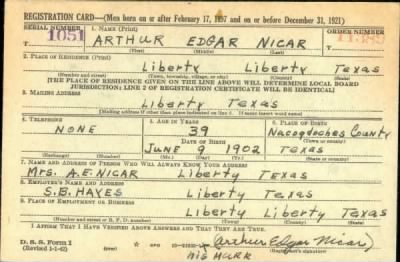 REGISTRATION CARD—(Men born on or after February 17, 1897 and on or before December 31, 1921)
SERIAL NUMBER 1. NAME (Print) ORDER NUMBER
1051 ARTHUR EDGAR NICAR
(First) (Middle) (Last)
2. PLACE OF RESIDENCE (Print)
Liberty Liberty Texas
(Number and street) (Town, township, village, or city) (County) (State)
[THE PLACE OF RESIDENCE GIVEN ON THE LINE ABOVE WILL DETERMINE LOCAL BOARD
JURISDICTION; LINE 2 OF REGISTRATION CERTIFICATE WILL BE IDENTICAL]
3. MAILING ADDRESS
Liberty Texas
[Mailing address if other than place indicated on line 2. If same insert word same]
4. TELEPHONE 5. AGE IN YEARS 6. PLACE OF BIRTH
NONE 39 Nacogdoches County
DATE OF BIRTH (Town or county)
JUNE 9 1902 Texas
(Exchange) (Number) (Mo.) (Day) (Yr.) (State or country)
7. NAME AND ADDRESS OF PERSON WHO WILL ALWAYS KNOW YOUR ADDRESS
Mrs. A.E. NICAR Liberty Texas
8. EMPLOYER'S NAME AND ADDRESS
S.B. HAYES Liberty Texas
9. PLACE OF EMPLOYMENT OR BUSINESS
Liberty Liberty Texas
(Number and street or R. F. D. number) (Town) (County) (State)
I AFFIRM THAT I HAVE VERIFIED ABOVE ANSWERS AND THAT THEY ARE TRUE.
D. S. S. Form 1
(Revised 1-1-42) GPO (Arthur Edgar Nicar)
(Registrant's signature)
his Mark